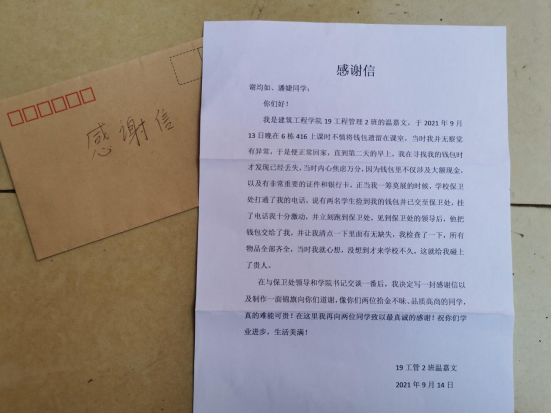 感谢信
感谢信
谢均如、潘婕同学：
你们好！
我是建筑工程学院 19 工程管理 2 班的温嘉文，于 2021 年 9 月
13 日晚在 6 栋 416 上课时不慎将钱包遗留在课室，当时我并无察觉
有异常，于是便正常回家，直到第二天的早上，我在寻找我的钱包时
才发现已经丢失，当时内心焦虑万分，因为钱包里不仅涉及大额现金，
以及有非常重要的证件和银行卡，正当我一筹莫展的时候，学校保卫
处打通了我的电话，说有两名学生捡到我的钱包并已交至保卫处，挂
了电话我十分激动，并立刻跑到保卫处，见到保卫处的领导后，他把
钱包交给了我，并让我清点一下里面有无缺失，我检查了一下，所有
物品全部齐全，当时我就心想，没想到才来学校不久，这就给我碰上
了贵人。
在与保卫处领导和学院书记交谈一番后，我决定写一封感谢信以
及制作一面锦旗向你们道谢，像你们两位拾金不昧、品质高尚的同学，
真的难能可贵！在这里我再向两位同学致以最真诚的感谢！祝你们学
业进步，生活美满！
19 工管 2 班温嘉文
2021 年 9 月 14 日